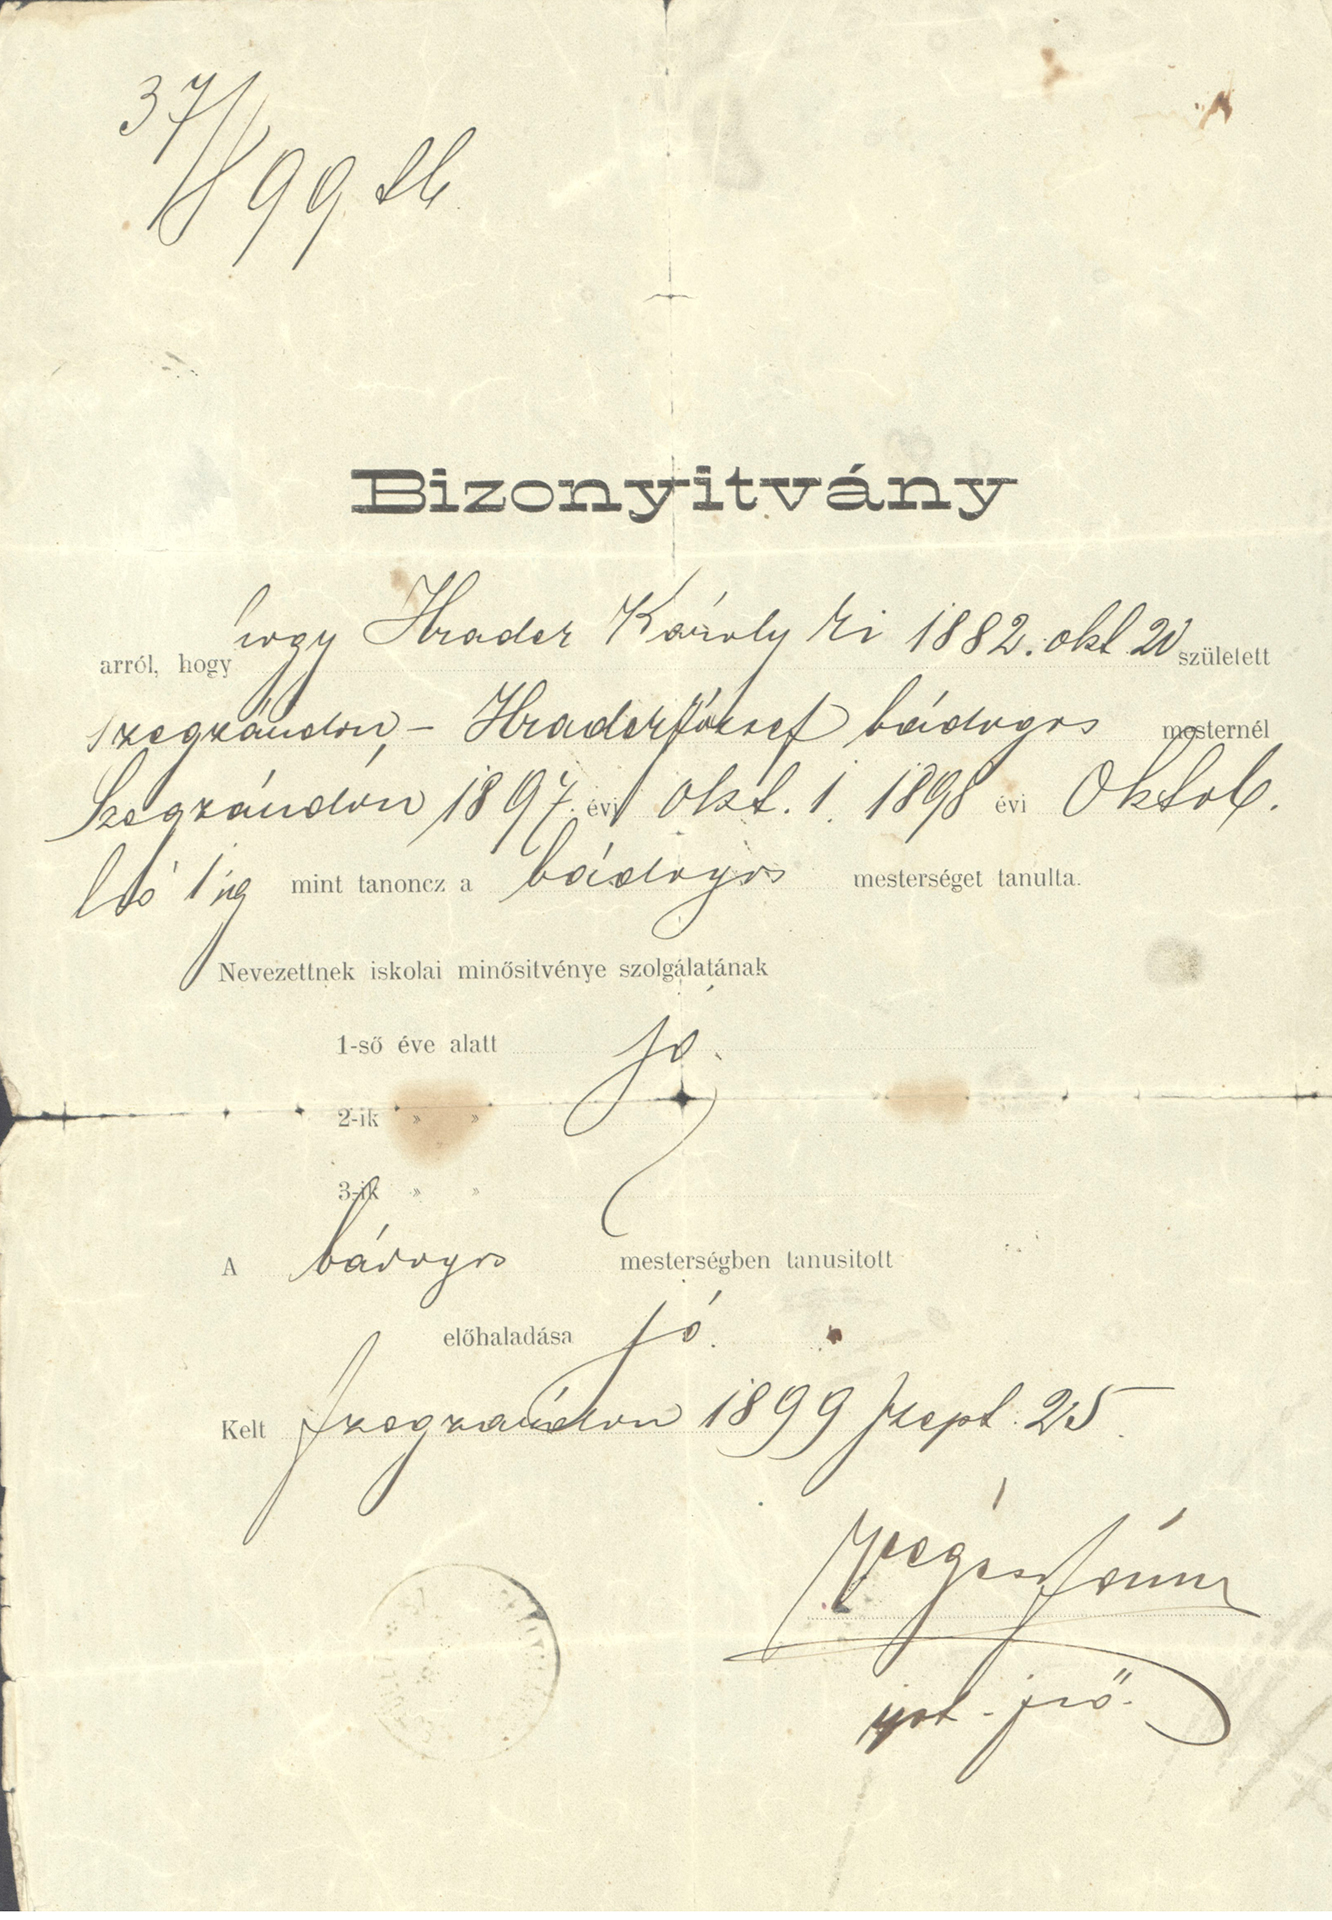 37/899 tb.
Bizonyitvány
arról, hogy hogy Hrader Károly ki 1882. okt 20 született
szegzárdon, – Hrader József bádogos mesternél
Szegzárdon 1897. évi okt. 1. 1898 évi Oktob.
hó 1 ig mint tanoncz a bádogos mesterséget tanulta.
Nevezettnek iskolai minősitvénye szolgálatának
1-ső éve alatt jó.
2-ik » »
3-ik » »
A bádogos mesterségben tanusitott
előhaladása jó.
Kelt Szegzárdon 1899 Szept. 25
János